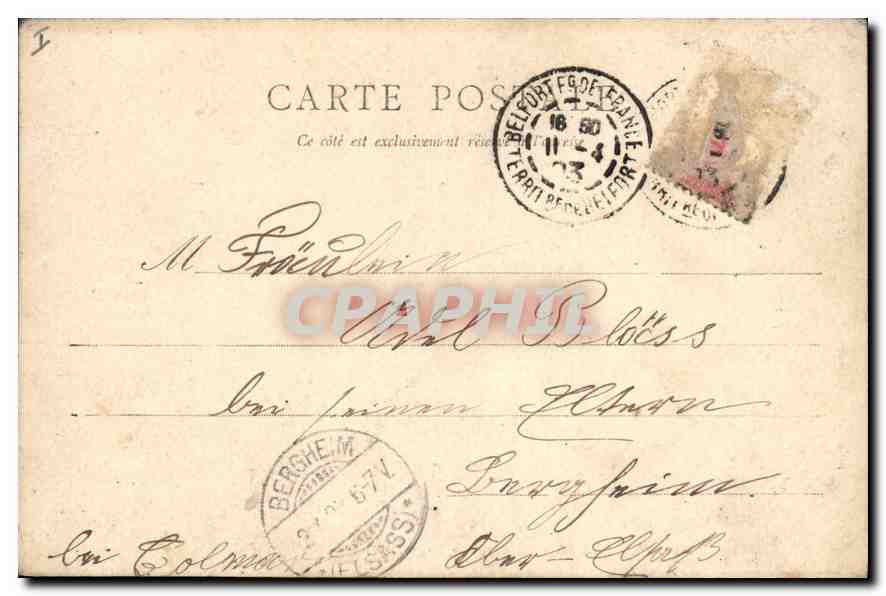 I
CARTE POST
Ce côté est exclusivement réservé à l'adresse
BELFORT FG DE FRANCE
16 50
11 - 4
03
TERRIT. RE DE BELFORT
M Fräulein
CPAPHIL
Adel Blöss
bei seinen Eltern
Bergheim.
BERGHEIM
6-7V.
(ELSASS) *
bei Colmar Ober-Elsaß.